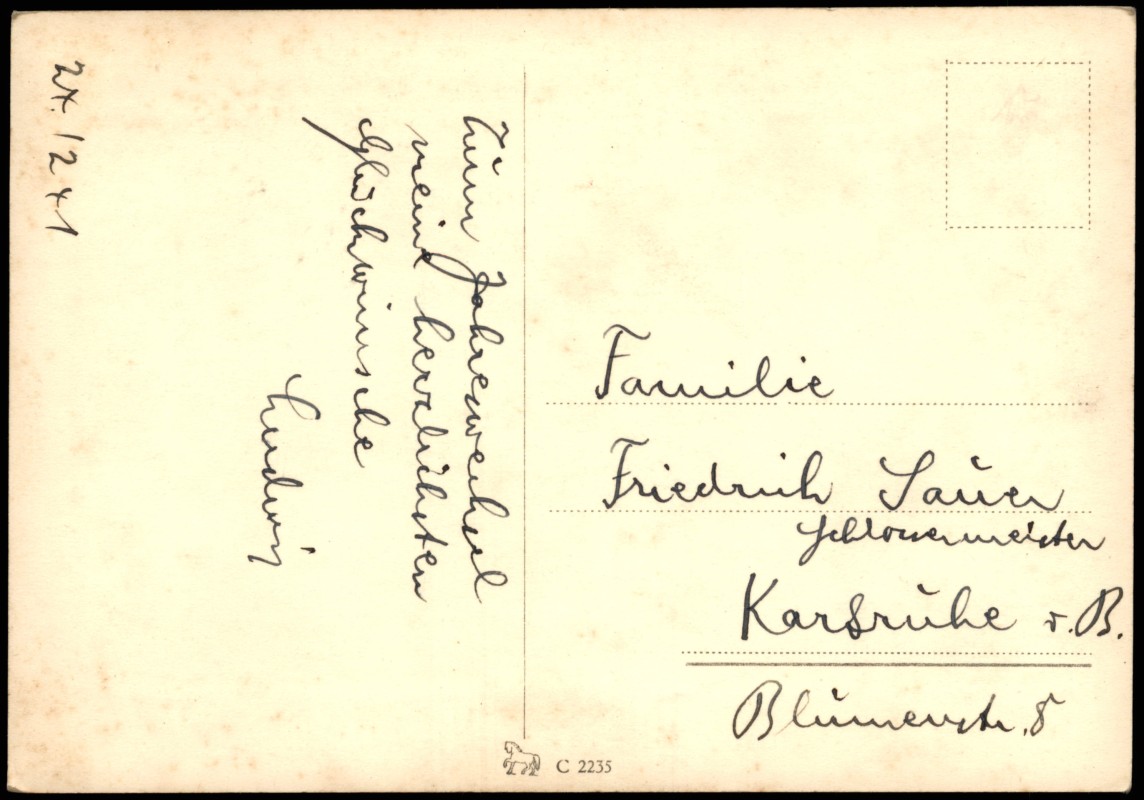 27. 12 41
Zum Jahreswechsel
meine herzlichsten
Glückwünsche
Ludwig
Familie
Friedrich Sauer
Schlossermeister
Karlsruhe i. B.
Blumenstr. 8
C 2235